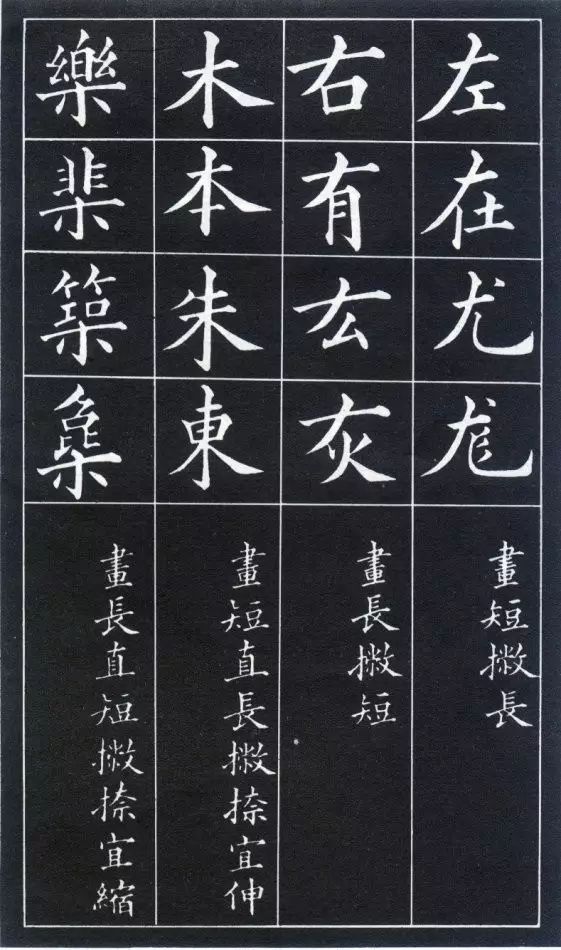 左在尤尨
畫短撇長
右有厷灰
畫長撇短
木本朱東
畫短直長撇捺宜伸
樂棐
畫長直短撇捺宜縮